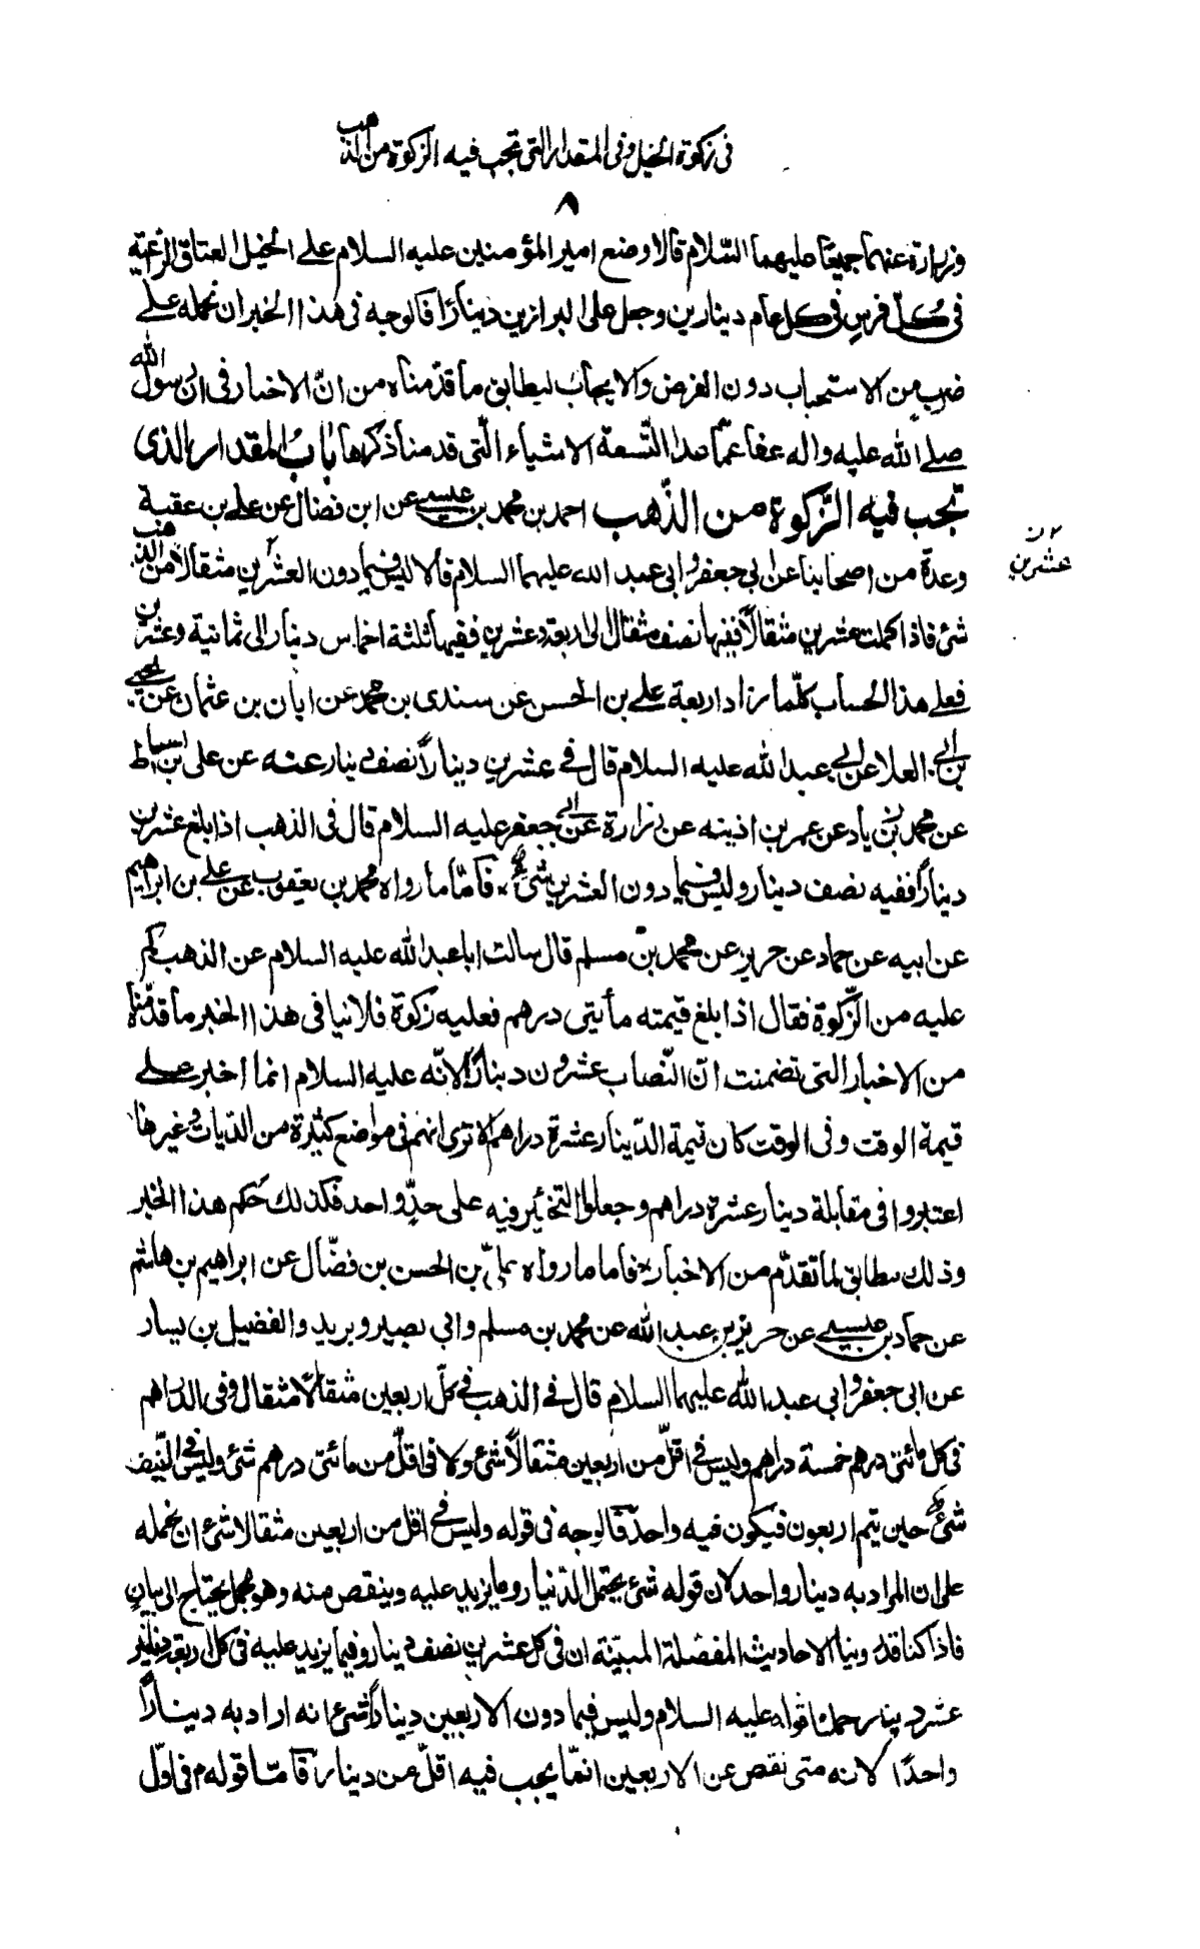 في زكوة الخيل وفي المقدار التي تجب فيه الزكوة من الذهب
٨
وزرارة عنهما جميعا عليهما السّلام قالا وضع امير المؤمنين عليه السلام على الخيل العتاق الراعية
في كلّ فرس في كل عام دينارين وجعل على البراذين دينارًا فالوجه في هذا الخبر ان نحمله على
ضرب من الاستحباب دون الفرض والايجاب ليطابق ما قدّمناه من انّ الاخبار في ان رسول الله
صلى الله عليه واله عفا عمّا عدا التّسعة الاشياء الّتى قدمنا ذكرها باب المقدار الذى
تجب فيه الزّكوة من الذّهب احمد بن محمد بن عيسى عن ابن فضال عن على بن عقبة
وعدة من اصحابنا عن ابى جعفر وابى عبد الله عليهما السلام قالا ليس فيما دون العشرين مثقالا من الذهب
عشرين
شئ فاذا كملت عشرين مثقالًا ففيها نصف مثقال الى اربعة وعشرين ففيها ثلثة اخماس دينار الى ثمانية وعشرين
فعلى هذا الحساب كلّما زاد اربعة على بن الحسن عن سندى بن محمد عن ابان بن عثمان عن يحيى
بن ابى العلا عن ابى عبد الله عليه السلام قال في عشرين دينارًا نصف دينار عنه عن على بن اسباط
عن محمد بن زياد عن عمر بن اذينه عن زرارة عن ابى جعفر عليه السلام قال في الذهب اذا بلغ عشرين
دينارًا ففيه نصف دينار وليس فيما دون العشرين شئ فامّا ما رواه محمد بن يعقوب عن على بن ابراهيم
عن ابيه عن حماد عن حريز عن محمد بن مسلم قال سالت ابا عبد الله عليه السلام عن الذهب كم
عليه من الزّكوة فقال اذا بلغ قيمته مأيتى درهم فعليه زكوة فلا ينافى هذا الخبر ما قدّمناه
من الاخبار التى تضمنت انّ النّصاب عشرون دينارًا لانّه عليه السلام انما اخبر على
قيمة الوقت وفى الوقت كان قيمة الدّينار عشرة دراهم الا ترى انهم في مواضع كثيرة من الديات وغيرها
اعتبروا في مقابلة دينار عشرة دراهم وجعلوا التخيير فيه على حدّ واحد فكذلك حكم هذا الخبر
وذلك مطابق لما تقدّم من الاخبار فاما ما رواه علىّ بن الحسن بن فضّال عن ابراهيم بن هاشم
عن حماد بن عيسى عن حريز بن عبد الله عن محمد بن مسلم وابى بصير وبريد والفضيل بن يسار
عن ابى جعفر وابى عبد الله عليهما السلام قال في الذهب في كلّ اربعين مثقالًا مثقال وفى الدراهم
في كل مائتى درهم خمسة دراهم وليس في اقلّ من اربعين مثقالًا شئ ولا في اقلّ من مائتى درهم شئ وليس في النّيف
شئ حين يتم اربعون فيكون فيه واحد فالوجه في قوله وليس في اقل من اربعين مثقالا شئ ان نحمله
على ان المراد به دينار واحد لان قوله شئ يحتمل الدّينار وما يزيد عليه وينقص منه وهو مجمل يحتاج الى بيان
فاذا كنا قد روينا الاحاديث المفصّلة المبيّنة ان في كل عشرين نصف دينار وفيما يزيد عليه في كل اربعة دنانير
عشر دينار حملنا قوله عليه السلام وليس فيما دون الاربعين دينارًا شئ انه اراد به دينارًا
واحدًا لانه متى نقص عن الاربعين انّما يجب فيه اقلّ من دينار فامّا قوله م في اوّل